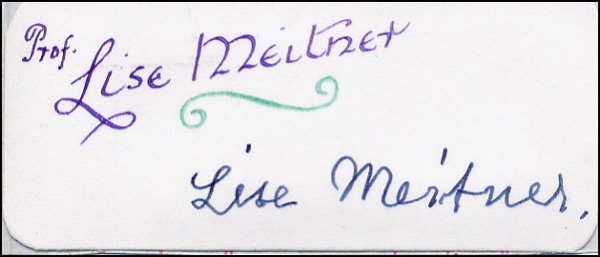 Prof. Lise Meitner
Lise Meitner.